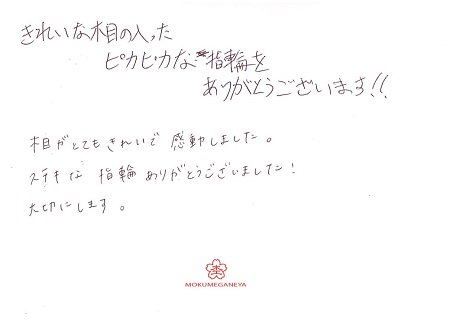 きれいな木目の入った
ピカピカな指輪を
ありがとうございます!!
木目がとてもきれいで 感動しました。
ステキな 指輪 ありがとうございました!
大切にします。
MOKUMEGANEYA